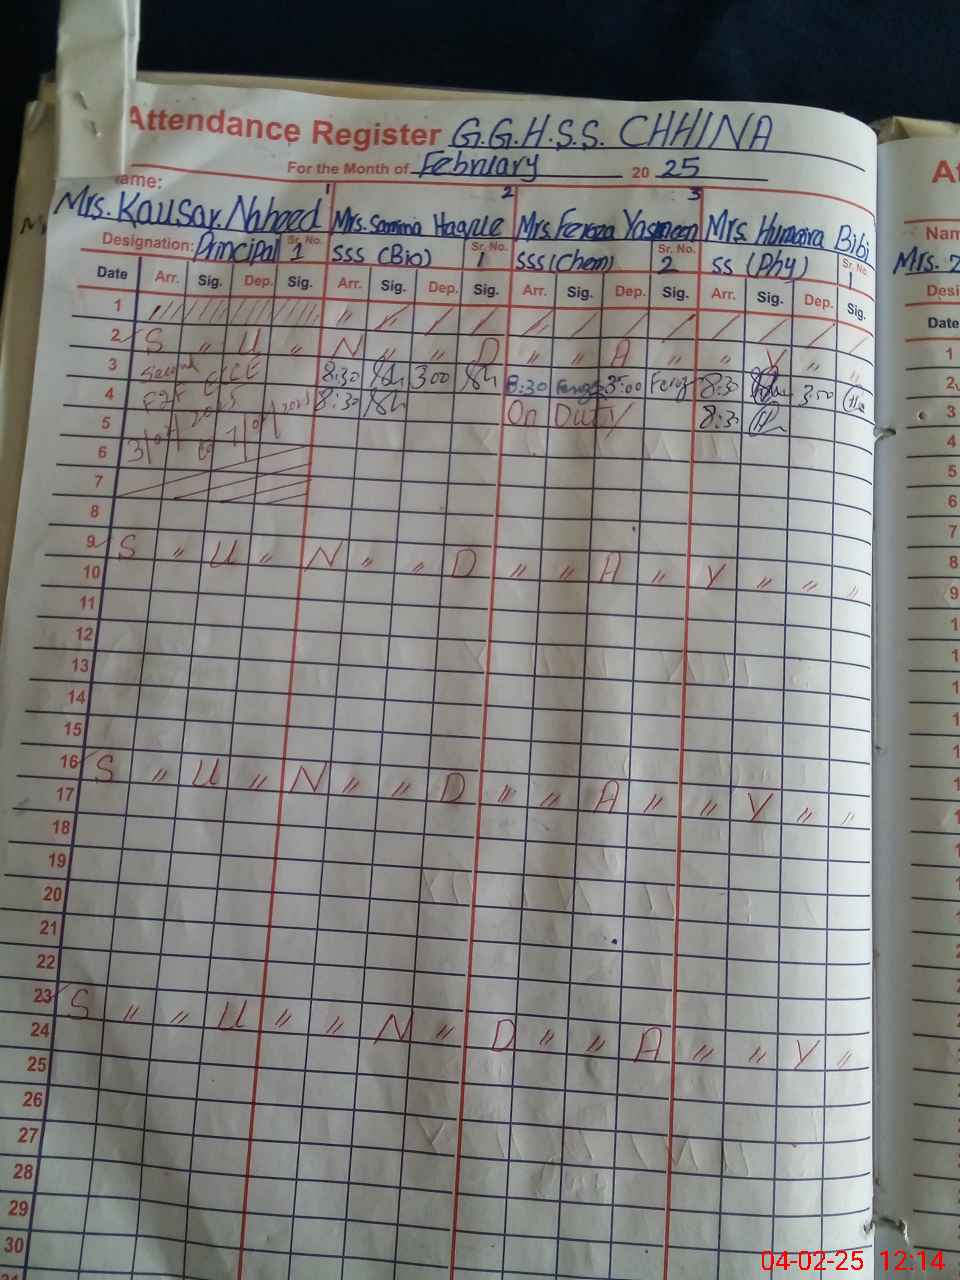 Attendance Register G.G.H.S.S. CHHINA
For the Month of February 20 25
ame: 1 2 3
Mrs. Kausar Naheed Mrs. Samina Haque Mrs. Feroza Yasmeen Mrs. Humaira Bibi
Designation: Principal Sr. No. 1 SSS (Bio) Sr. No. 1 SSS (Chem) Sr. No. 2 SS (Phy) Sr. No. 1
Date Arr. Sig. Dep. Sig. Arr. Sig. Dep. Sig. Arr. Sig. Dep. Sig. Arr. Sig. Dep. Sig.
1
2 S " U " N " " D " " A " " Y " "
3 8:30 3:00 8:30 3:00 8:30 3:00
4 8:30 On Duty 8:30
5
6
7
8
9 S " U " N " " D " " A " Y " " "
10
11
12
13
14
15
16 S " U " N " " D " " A " " Y " "
17
18
19
20
21
22
23 S " " U " " N " D " " A " " Y "
24
25
26
27
28
29
30
At
Nam
Mrs.
Desi
Date
1
2
3
4
5
6
7
8
9
04-02-25 12:14